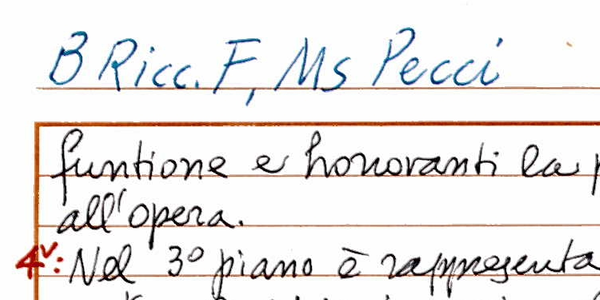 B Ricc. F, Ms Pecci
funtione e honoranti la
all'opera.
4v: Nel 3º piano è rappresenta